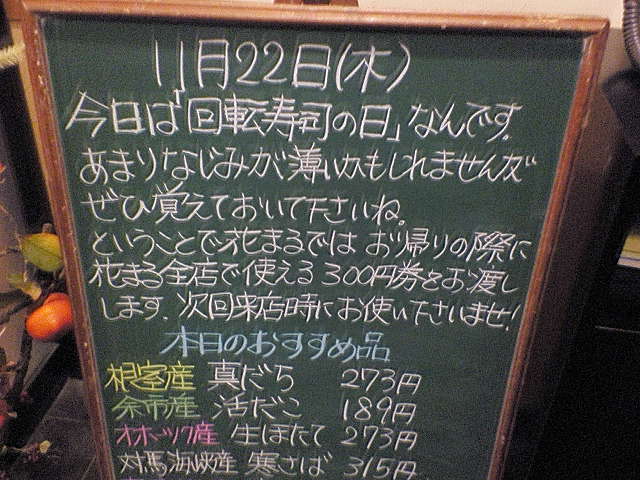 11月22日(木)
今日は「回転寿司の日」なんです。
あまりなじみが薄いかもしれませんが
ぜひ覚えておいて下さいね。
ということで花まるでは お帰りの際に
花まる全店で使える300円券をお渡し
します。次回来店時にお使い下さいませ!
本日のおすすめ品
根室産 真だら 273円
余市産 活だこ 189円
オホーツク産 生ほたて 273円
対馬海峡産 寒さば 315円